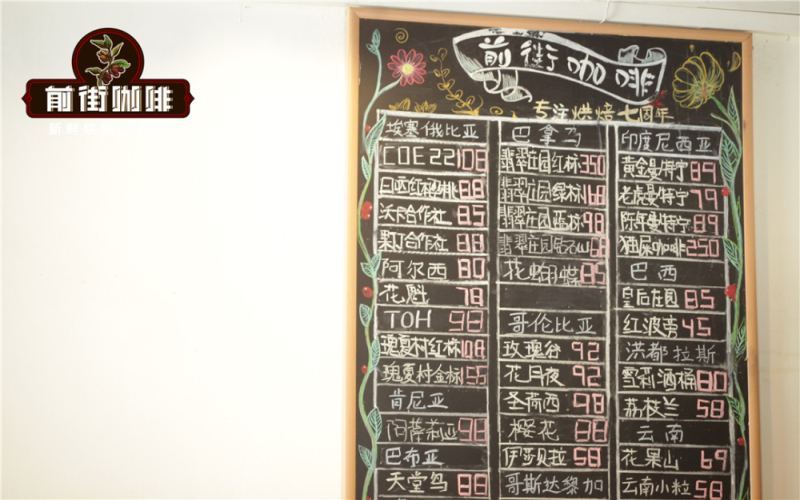 前街咖啡
前街咖啡
专注烘焙七周年
埃塞俄比亚
COE22 108
日晒红樱桃 88
沃卡合作社 85
果丁合作社 88
阿尔西 80
花魁 78
TOH 98
瑰夏村红标 108
瑰夏村金标 155
肯尼亚
阿蒂莉亚 98
巴布亚
天堂鸟 88
巴拿马
翡翠庄园红标 350
翡翠庄园绿标 168
翡翠庄园蓝标 98
翡翠庄园钻石山 68
花蝴蝶 85
哥伦比亚
玫瑰谷 92
花月夜 92
圣荷西 98
樱花 88
伊莎贝拉 58
哥斯达黎加
印度尼西亚
黄金曼特宁 89
老虎曼特宁 79
陈年曼特宁 89
猫屎咖啡 250
巴西
皇后庄园 85
红波旁 45
洪都拉斯
雪莉酒桶 80
荔枝兰 58
云南
花果山 69
云南小粒 58